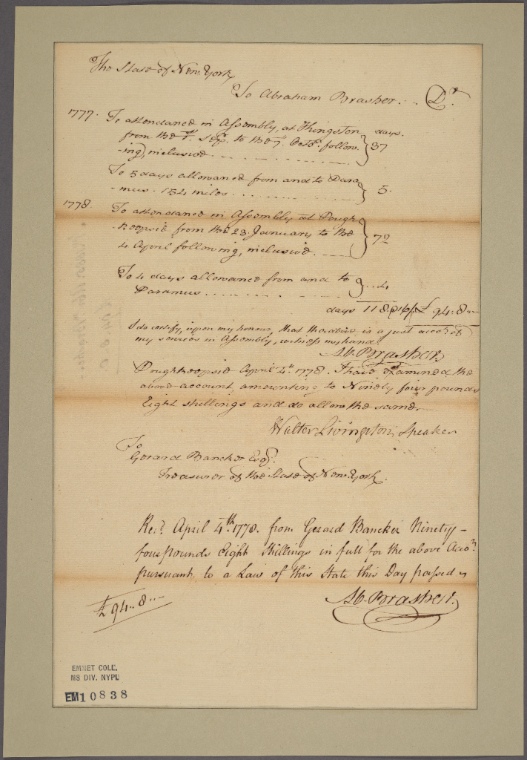 The State of New York
To Abraham Brasher .. Dr.
1777. To attendance in Assembly, at Kingston days.
from the 1st. Sepr. to the 7 Octor. follow- } 37
ing, inclusive
To 5 days allowed from and to Para- } 5.
mus. 154 miles
1778. To attendance in Assembly at Pough- 
keepsie from the 23. January to the } 72
4 April following, inclusive
To 4 days allowed from and to } .. 4
Paramus
days 118 @ 16/ £ 94.8
I do certify, upon my honour, that the above is a just accot. of
my service in Assembly, witness my hand
Ab. Brasher
Poughkeepsie April 4th. 1778. I have examined the
above account amounting to Ninety four pounds
Eight shillings and do allow the same.
Walter Livingston, Speaker
To
Gerard Bancker Esqr.
Treasurer of the State of New York.
Recd. April 4th. 1778. from Gerard Bancker Ninety-
four pounds Eight Shillings in full for the above Acco.
pursuant to a Law of this State this Day passed
£ 94-8-
Ab. Brasher.
EMMET COLL.
MS DIV. NYPL
EM10838